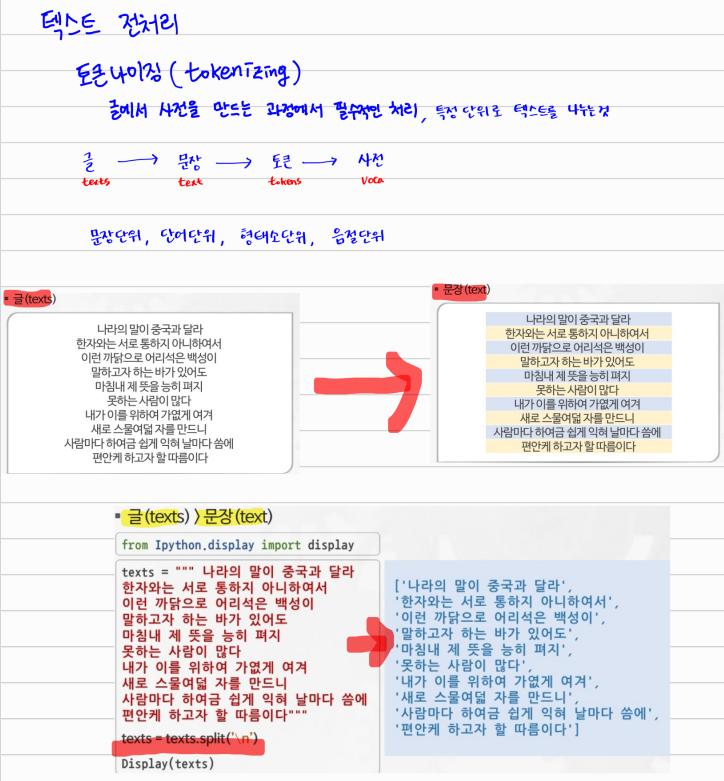 텍스트 전처리
토큰나이징 (tokenizing)
글에서 사전을 만드는 과정에서 필수적인 처리, 특정 단위로 텍스트를 나누는 것
글 → 문장 → 토큰 → 사전
texts text tokens voca
문장단위, 단어단위, 형태소단위, 음절단위
▪ 글(texts)
나라의 말이 중국과 달라
한자와는 서로 통하지 아니하여서
이런 까닭으로 어리석은 백성이
말하고자 하는 바가 있어도
마침내 제 뜻을 능히 펴지
못하는 사람이 많다
내가 이를 위하여 가엾게 여겨
새로 스물여덟 자를 만드니
사람마다 하여금 쉽게 익혀 날마다 씀에
편안케 하고자 할 따름이다
▪ 문장(text)
나라의 말이 중국과 달라
한자와는 서로 통하지 아니하여서
이런 까닭으로 어리석은 백성이
말하고자 하는 바가 있어도
마침내 제 뜻을 능히 펴지
못하는 사람이 많다
내가 이를 위하여 가엾게 여겨
새로 스물여덟 자를 만드니
사람마다 하여금 쉽게 익혀 날마다 씀에
편안케 하고자 할 따름이다
▪ 글(texts) > 문장(text)
from Ipython.display import display
texts = """ 나라의 말이 중국과 달라
한자와는 서로 통하지 아니하여서
이런 까닭으로 어리석은 백성이
말하고자 하는 바가 있어도
마침내 제 뜻을 능히 펴지
못하는 사람이 많다
내가 이를 위하여 가엾게 여겨
새로 스물여덟 자를 만드니
사람마다 하여금 쉽게 익혀 날마다 씀에
편안케 하고자 할 따름이다"""
texts = texts.split('\n')
Display(texts)
['나라의 말이 중국과 달라',
'한자와는 서로 통하지 아니하여서',
'이런 까닭으로 어리석은 백성이',
'말하고자 하는 바가 있어도',
'마침내 제 뜻을 능히 펴지',
'못하는 사람이 많다',
'내가 이를 위하여 가엾게 여겨',
'새로 스물여덟 자를 만드니',
'사람마다 하여금 쉽게 익혀 날마다 씀에',
'편안케 하고자 할 따름이다']